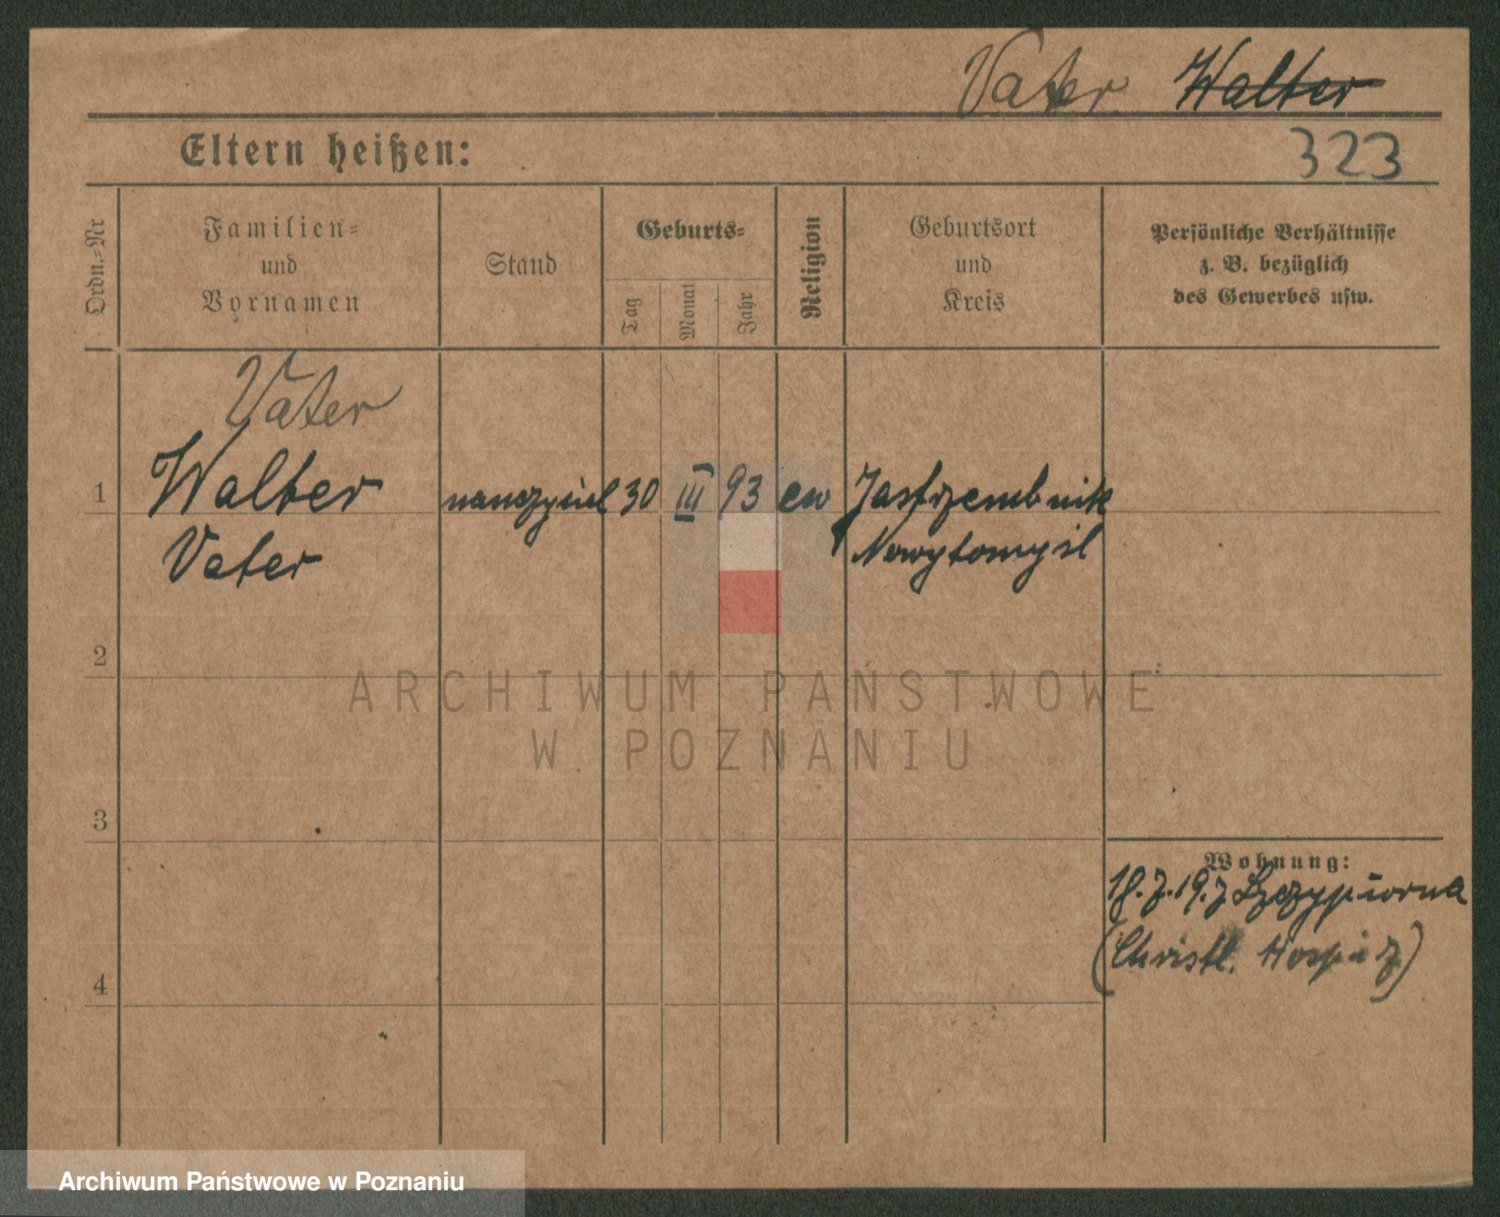 Vater Walter
Eltern heißen:
323
Ordn.-Nr
Familien-
und
Vornamen
Stand
Geburts-
Tag
Monat
Jahr
Religion
Geburtsort
und
Kreis
Persönliche Verhältnisse
z. B. bezüglich
des Gewerbes usw.
Vater
1 Walter nauczyciel 30 III 93 ew Jastrzembnik
Vater Nowytomysl
2
3
4
Wohnung:
Szczypiorna
(Christl. Hospiz)
ARCHIWUM PAŃSTWOWE
W POZNANIU
Archiwum Państwowe w Poznaniu